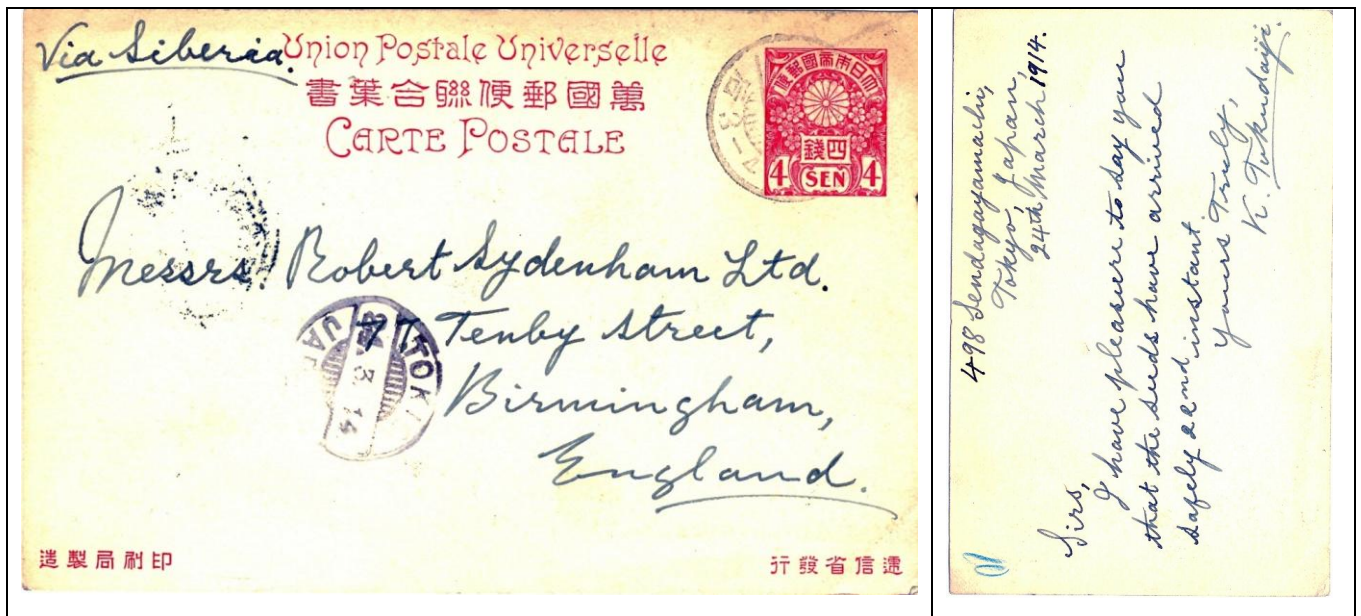 Via Siberia.
Union Postale Universelle
萬國郵便聯合葉書
CARTE POSTALE
大日本帝國郵便
四錢
4 SEN 4
Messrs. Robert Sydenham Ltd.
77 Tenby Street,
Birmingham,
England.
印刷局製造
遞信省發行
498 Sendagayamachi,
Tokyo, Japan,
24th March 1914.
Sirs,
I have pleasure to say you
that the seeds have arrived
safely 22nd instant.
Yours Truly,
K. Tokudaiji.